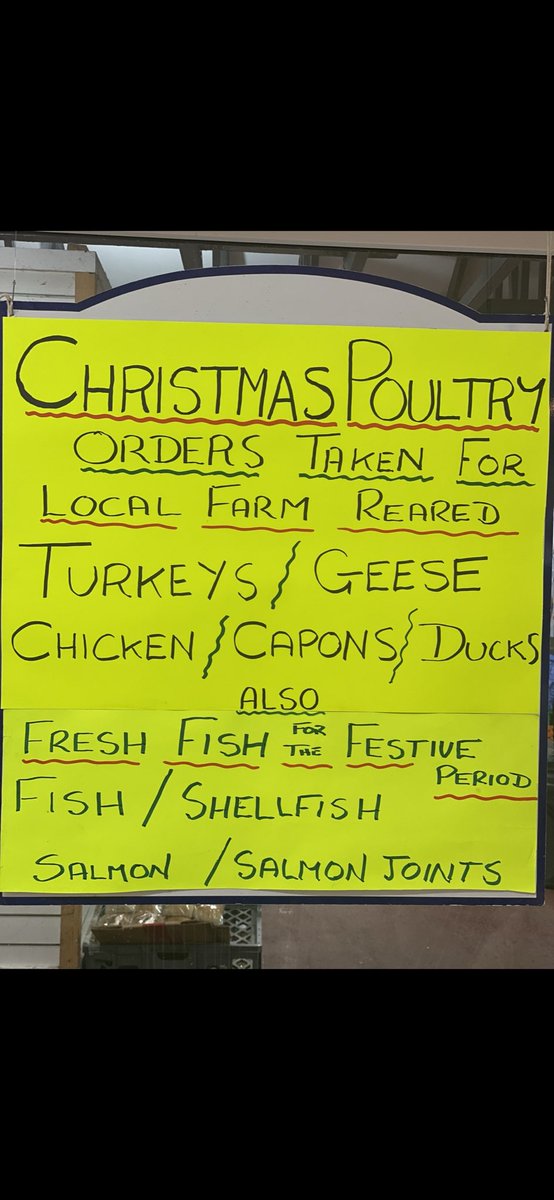 CHRISTMAS POULTRY
ORDERS TAKEN FOR
LOCAL FARM REARED
TURKEYS / GEESE
CHICKEN / CAPONS / DUCKS
ALSO
FRESH FISH FOR THE FESTIVE
PERIOD
FISH / SHELLFISH
SALMON / SALMON JOINTS